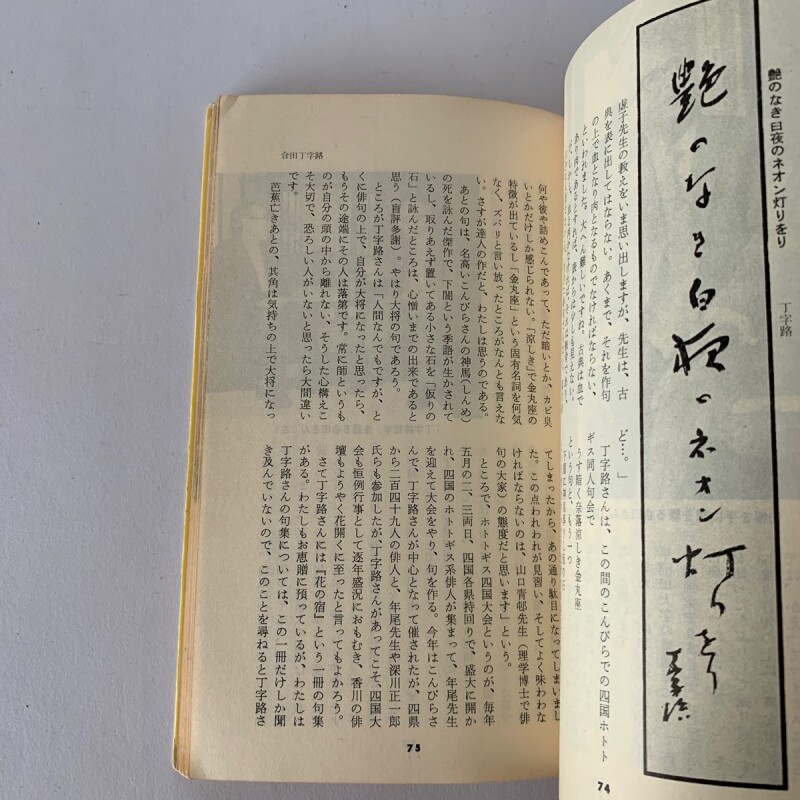 艶のなき白夜のネオン灯りをり
丁字路
艶のなき白夜のネオン灯りをり
丁字路
虚子先生の教えをいま思い出しますが、先生は、古
典を表に出してはならない。あくまで、それを作句
の上で血となり肉となるものでなければならない、
といわれました。大へん難しいですね。古典は血で
ど…。」
丁字路さんは、この間のこんぴらでの四国ホトト
ギス同人句会で
うす暗く奈落涼しき金丸座
という句と、もう一つ
74
合田丁字路
何や彼や詰めこんであって、ただ暗いとか、カビ臭
いとかだけしか感じられない。「涼しき」で金丸座の
特徴が出ているし「金丸座」という固有名詞を何気
なく、ズバリと言い放ったところがなんとも言えな
い。さすが達人の作だと、わたしは思うのである。
あとの句は、名高いこんぴらさんの神馬(しんめ)
の死を詠んだ傑作で、下闇という季語が生かされて
いるし、取りあえず置いてある小さな石を「仮りの
石」と詠んだところは、心憎いまでの出来であると
思う(盲評多謝)。やはり大将の句であろう。
ところが丁字路さんは「人間なんでもですが、と
くに俳句の上で、自分が大将になったと思ったら、
もうその途端にその人は落第です。常に師というも
のが自分の頭の中から離れない、そうした心構えこ
そ大切で、恐ろしい人がいないと思ったら大間違い
です。
芭蕉亡きあとの、其角は気持ちの上で大将になっ
てしまったから、あの通り駄目になってしまいまし
た。この点われわれが見習い、そしてよく味わわな
ければならないのは、山口青邨先生(理学博士で俳
句の大家)の態度だと思います」という。
ところで、ホトトギス四国大会というのが、毎年
五月の二、三両日、四国各県持回りで、盛大に開か
れ、四国のホトトギス系俳人が集まって、年尾先生
を迎えて大会をやり、句を作る。今年はこんぴらさ
んで、丁字路さんが中心となって催されたが、四県
から二百四十九人の俳人と、年尾先生や深川正一郎
氏らも参加したが、丁字路さんがあってこそ、四国大
会も恒例行事として逐年盛況におもむき、香川の俳
壇もようやく花開くに至ったと言ってもよかろう。
さて丁字路さんには『花の宿』という一冊の句集
がある。わたしもお恵贈に預っているが、わたしは
丁字路さんの句集については、この一冊だけしか聞
き及んでいないので、このことを尋ねると丁字路さ
75